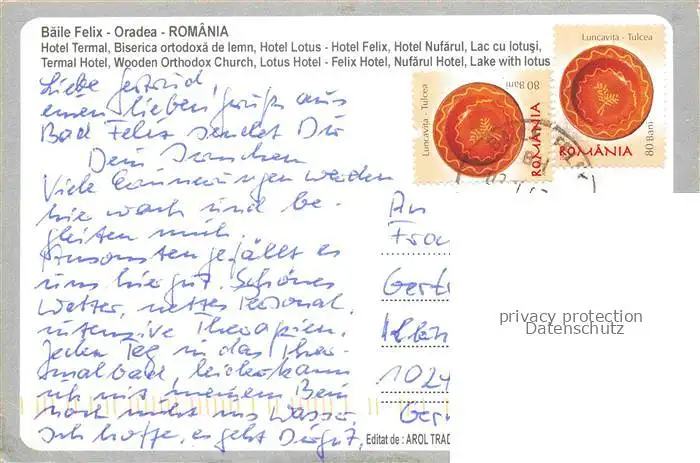 Băile Felix - Oradea - ROMÂNIA
Hotel Termal, Biserica ortodoxă de lemn, Hotel Lotus - Hotel Felix, Hotel Nufărul, Lac cu lotuşi,
Termal Hotel, Wooden Orthodox Church, Lotus Hotel - Felix Hotel, Nufărul Hotel, Lake with lotus
Luncaviţa - Tulcea
80 Bani
ROMÂNIA
Luncaviţa - Tulcea
80 Bani
ROMÂNIA
Liebe Gertrud,
einen lieben Gruß aus
Bad Felix sendet Dir
Dein
Viele Erinnerungen werden
hie wach und be-
gleiten mich.
Ansonsten gefällt es
uns hier gut. Schönes
Wetter, nettes Personal,
intensive Therapien.
Jeden Tag in das Ther-
malbad, leider kann
ich mit meinem Bein
noch nicht ins Wasser,
Ich hoffe, es geht Dir gut,
An
Frau
Gert
1024
Ger
Editat de: AROL TRAD
privacy protection
Datenschutz